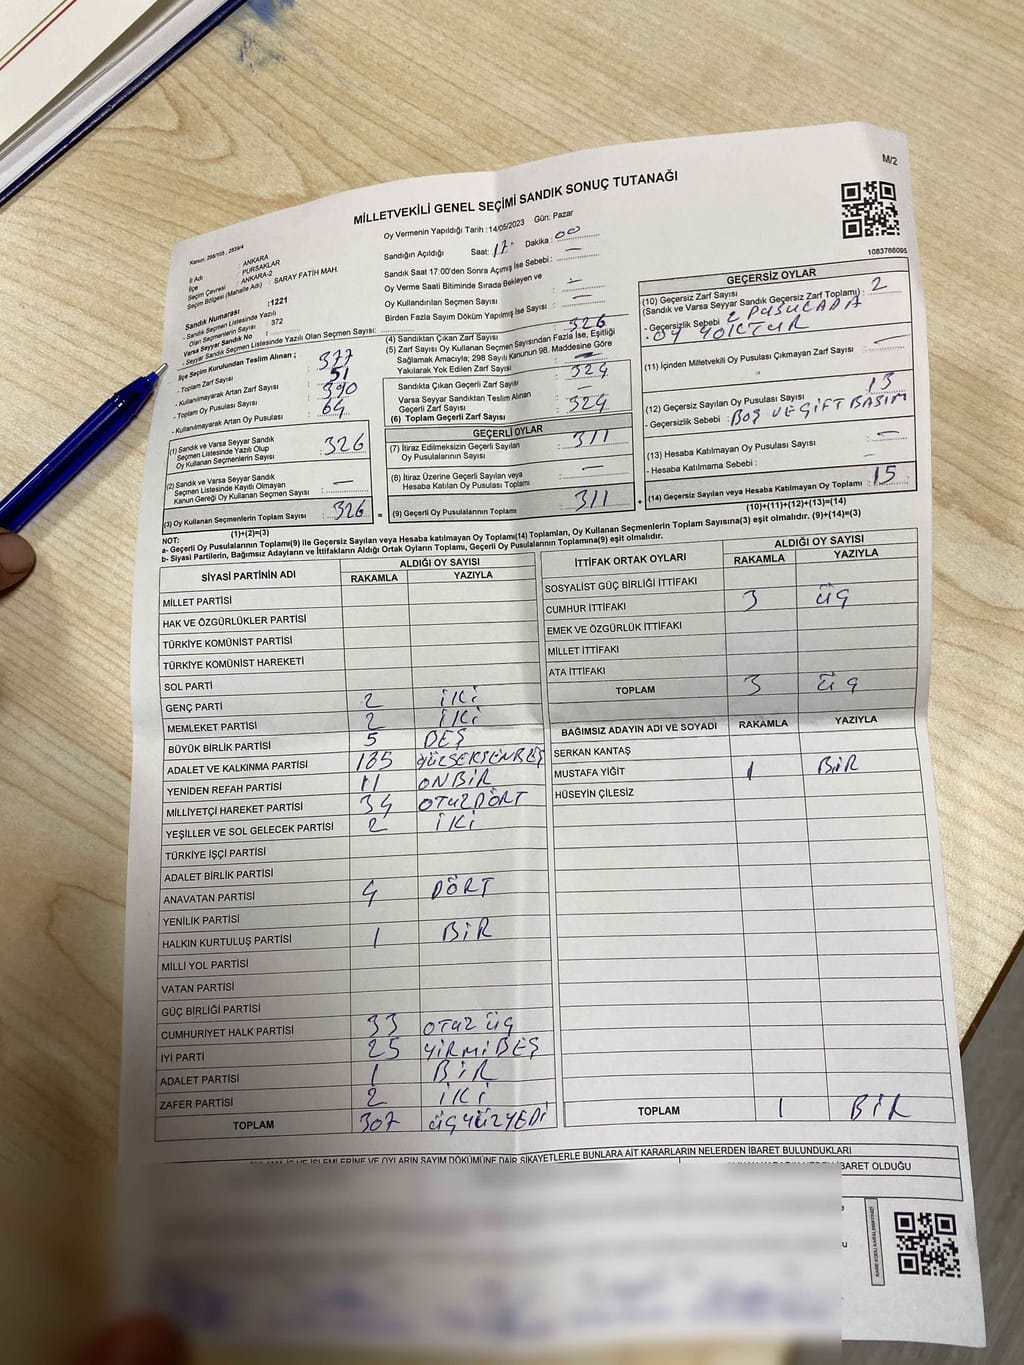 M/2
MİLLETVEKİLİ GENEL SEÇİMİ SANDIK SONUÇ TUTANAĞI
Kanun: 298/105 , 2839/4
Oy Vermenin Yapıldığı Tarih : 14/05/2023 Gün: Pazar
1083766095
İl Adı : ANKARA
İlçe : PURSAKLAR
Seçim Çevresi : ANKARA-2
Seçim Bölgesi (Mahalle Adı) : SARAY FATİH MAH.
Sandık Numarası :1221
- Sandık Seçmen Listesinde Yazılı
Olan Seçmenlerin Sayısı : 372
Varsa Seyyar Sandık No :
- Seyyar Sandık Seçmen Listesinde Yazılı Olan Seçmen Sayısı:
İlçe Seçim Kurulundan Teslim Alınan ;
- Toplam Zarf Sayısı : 377
- Kullanılmayarak Artan Zarf Sayısı : 51
- Toplam Oy Pusulası Sayısı : 390
- Kullanılmayarak Artan Oy Pusulası : 64
(1) Sandık ve Varsa Seyyar Sandık
Seçmen Listesinde Yazılı Olup
Oy Kullanan Seçmenlerin Sayısı : 326
(2) Sandık ve Varsa Seyyar Sandık
Seçmen Listesinde Kayıtlı Olmayan
Kanun Gereği Oy Kullanan Seçmen Sayısı : —
(3) Oy Kullanan Seçmenlerin Toplam Sayısı : 326
(1)+(2)=(3)
Sandığın Açıldığı Saat: 17 Dakika : 00
Sandık Saat 17:00'den Sonra Açımış İse Sebebi : —
Oy Verme Saati Bitiminde Sırada Bekleyen ve
Oy Kullandırılan Seçmen Sayısı : —
Birden Fazla Sayım Döküm Yapılmış İse Sayısı : —
(4) Sandıktan Çıkan Zarf Sayısı : 326
(5) Zarf Sayısı Oy Kullanan Seçmen Sayısından Fazla İse, Eşitliği
Sağlamak Amacıyla; 298 Sayılı Kanunun 98. Maddesine Göre
Yakılarak Yok Edilen Zarf Sayısı : —
Sandıkta Çıkan Geçerli Zarf Sayısı : 324
Varsa Seyyar Sandıktan Teslim Alınan
Geçerli Zarf Sayısı :
(6) Toplam Geçerli Zarf Sayısı : 324
GEÇERLİ OYLAR
(7) İtiraz Edilmeksizin Geçerli Sayılan
Oy Pusulalarının Sayısı : 311
(8) İtiraz Üzerine Geçerli Sayılan veya
Hesaba Katılan Oy Pusulası Toplamı : —
(9) Geçerli Oy Pusulalarının Toplamı : 311
GEÇERSİZ OYLAR
(10) Geçersiz Zarf Sayısı : 2
(Sandık ve Varsa Seyyar Sandık Geçersiz Zarf Toplamı)
- Geçersizlik Sebebi : 2 PUSULADA
OY YOKTUR
(11) İçinden Milletvekili Oy Pusulası Çıkmayan Zarf Sayısı : —
(12) Geçersiz Sayılan Oy Pusulası Sayısı : 13
- Geçersizlik Sebebi : BOŞ VE ÇİFT BASIM
(13) Hesaba Katılmayan Oy Pusulası Sayısı : —
- Hesaba Katılmama Sebebi :
(14) Geçersiz Sayılan veya Hesaba Katılmayan Oy Toplamı : 15
(10)+(11)+(12)+(13)=(14)
NOT:
a- Geçerli Oy Pusulalarının Toplamı(9) ile Geçersiz Sayılan veya Hesaba katılmayan Oy Toplamı(14) Toplamları, Oy Kullanan Seçmenlerin Toplam Sayısına(3) eşit olmalıdır. (9)+(14)=(3)
b- Siyasi Partilerin, Bağımsız Adayların ve İttifakların Aldığı Ortak Oyların Toplamı, Geçerli Oy Pusulalarının Toplamına(9) eşit olmalıdır.
SİYASİ PARTİNİN ADI ALDIĞI OY SAYISI
RAKAMLA YAZIYLA
MİLLET PARTİSİ
HAK VE ÖZGÜRLÜKLER PARTİSİ
TÜRKİYE KOMÜNİST PARTİSİ
TÜRKİYE KOMÜNİST HAREKETİ
SOL PARTİ
GENÇ PARTİ 2 İKİ
MEMLEKET PARTİSİ 2 İKİ
BÜYÜK BİRLİK PARTİSİ 5 BEŞ
ADALET VE KALKINMA PARTİSİ 185 YÜZSEKSENBEŞ
YENİDEN REFAH PARTİSİ 11 ONBİR
MİLLİYETÇİ HAREKET PARTİSİ 34 OTUZDÖRT
YEŞİLLER VE SOL GELECEK PARTİSİ 2 İKİ
TÜRKİYE İŞÇİ PARTİSİ
ADALET BİRLİK PARTİSİ
ANAVATAN PARTİSİ 4 DÖRT
YENİLİK PARTİSİ
HALKIN KURTULUŞ PARTİSİ 1 BİR
MİLLİ YOL PARTİSİ
VATAN PARTİSİ
GÜÇ BİRLİĞİ PARTİSİ
CUMHURİYET HALK PARTİSİ 33 OTUZ ÜÇ
İYİ PARTİ 25 YİRMİBEŞ
ADALET PARTİSİ 1 BİR
ZAFER PARTİSİ 2 İKİ
TOPLAM 307 ÜÇYÜZYEDİ
İTTİFAK ORTAK OYLARI ALDIĞI OY SAYISI
RAKAMLA YAZIYLA
SOSYALİST GÜÇ BİRLİĞİ İTTİFAKI
CUMHUR İTTİFAKI 3 ÜÇ
EMEK VE ÖZGÜRLÜK İTTİFAKI
MİLLET İTTİFAKI
ATA İTTİFAKI
TOPLAM 3 ÜÇ
BAĞIMSIZ ADAYIN ADI VE SOYADI RAKAMLA YAZIYLA
SERKAN KANTAŞ
MUSTAFA YİĞİT 1 BİR
HÜSEYİN ÇİLESİZ
TOPLAM 1 BİR
İŞLEMLERİNE VE OYLARIN SAYIM DÖKÜMÜNE DAİR ŞİKAYETLERLE BUNLARA AİT KARARLARIN NELERDEN İBARET BULUNDUKLARI
İBARET OLDUĞU